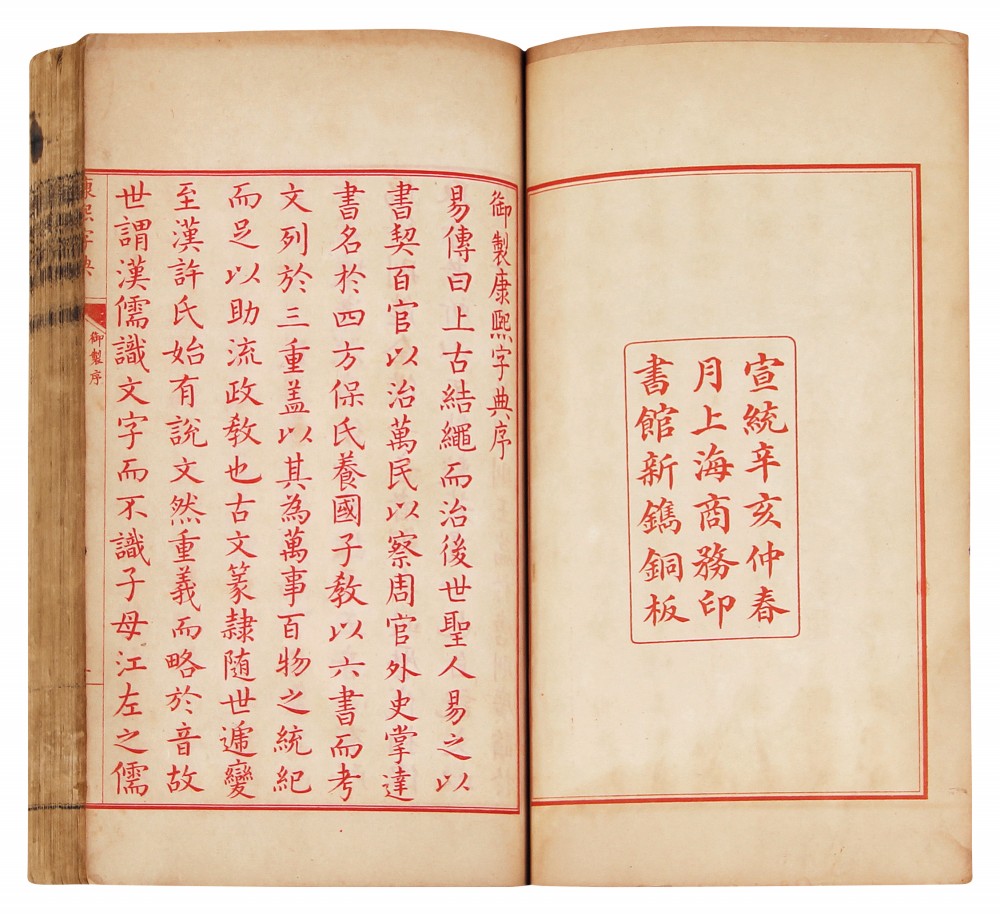 宣統辛亥仲春
月上海商務印
書館新鐫銅板
御製康熙字典序
易傳曰上古結繩而治後世聖人易之以
書契百官以治萬民以察周官外史掌達
書名於四方保氏養國子敎以六書而考
文列於三重蓋以其為萬事百物之統紀
而足以助流政敎也古文篆隸隨世遞變
至漢許氏始有說文然重義而略於音故
世謂漢儒識文字而不識子母江左之儒
康熙字典
御製序